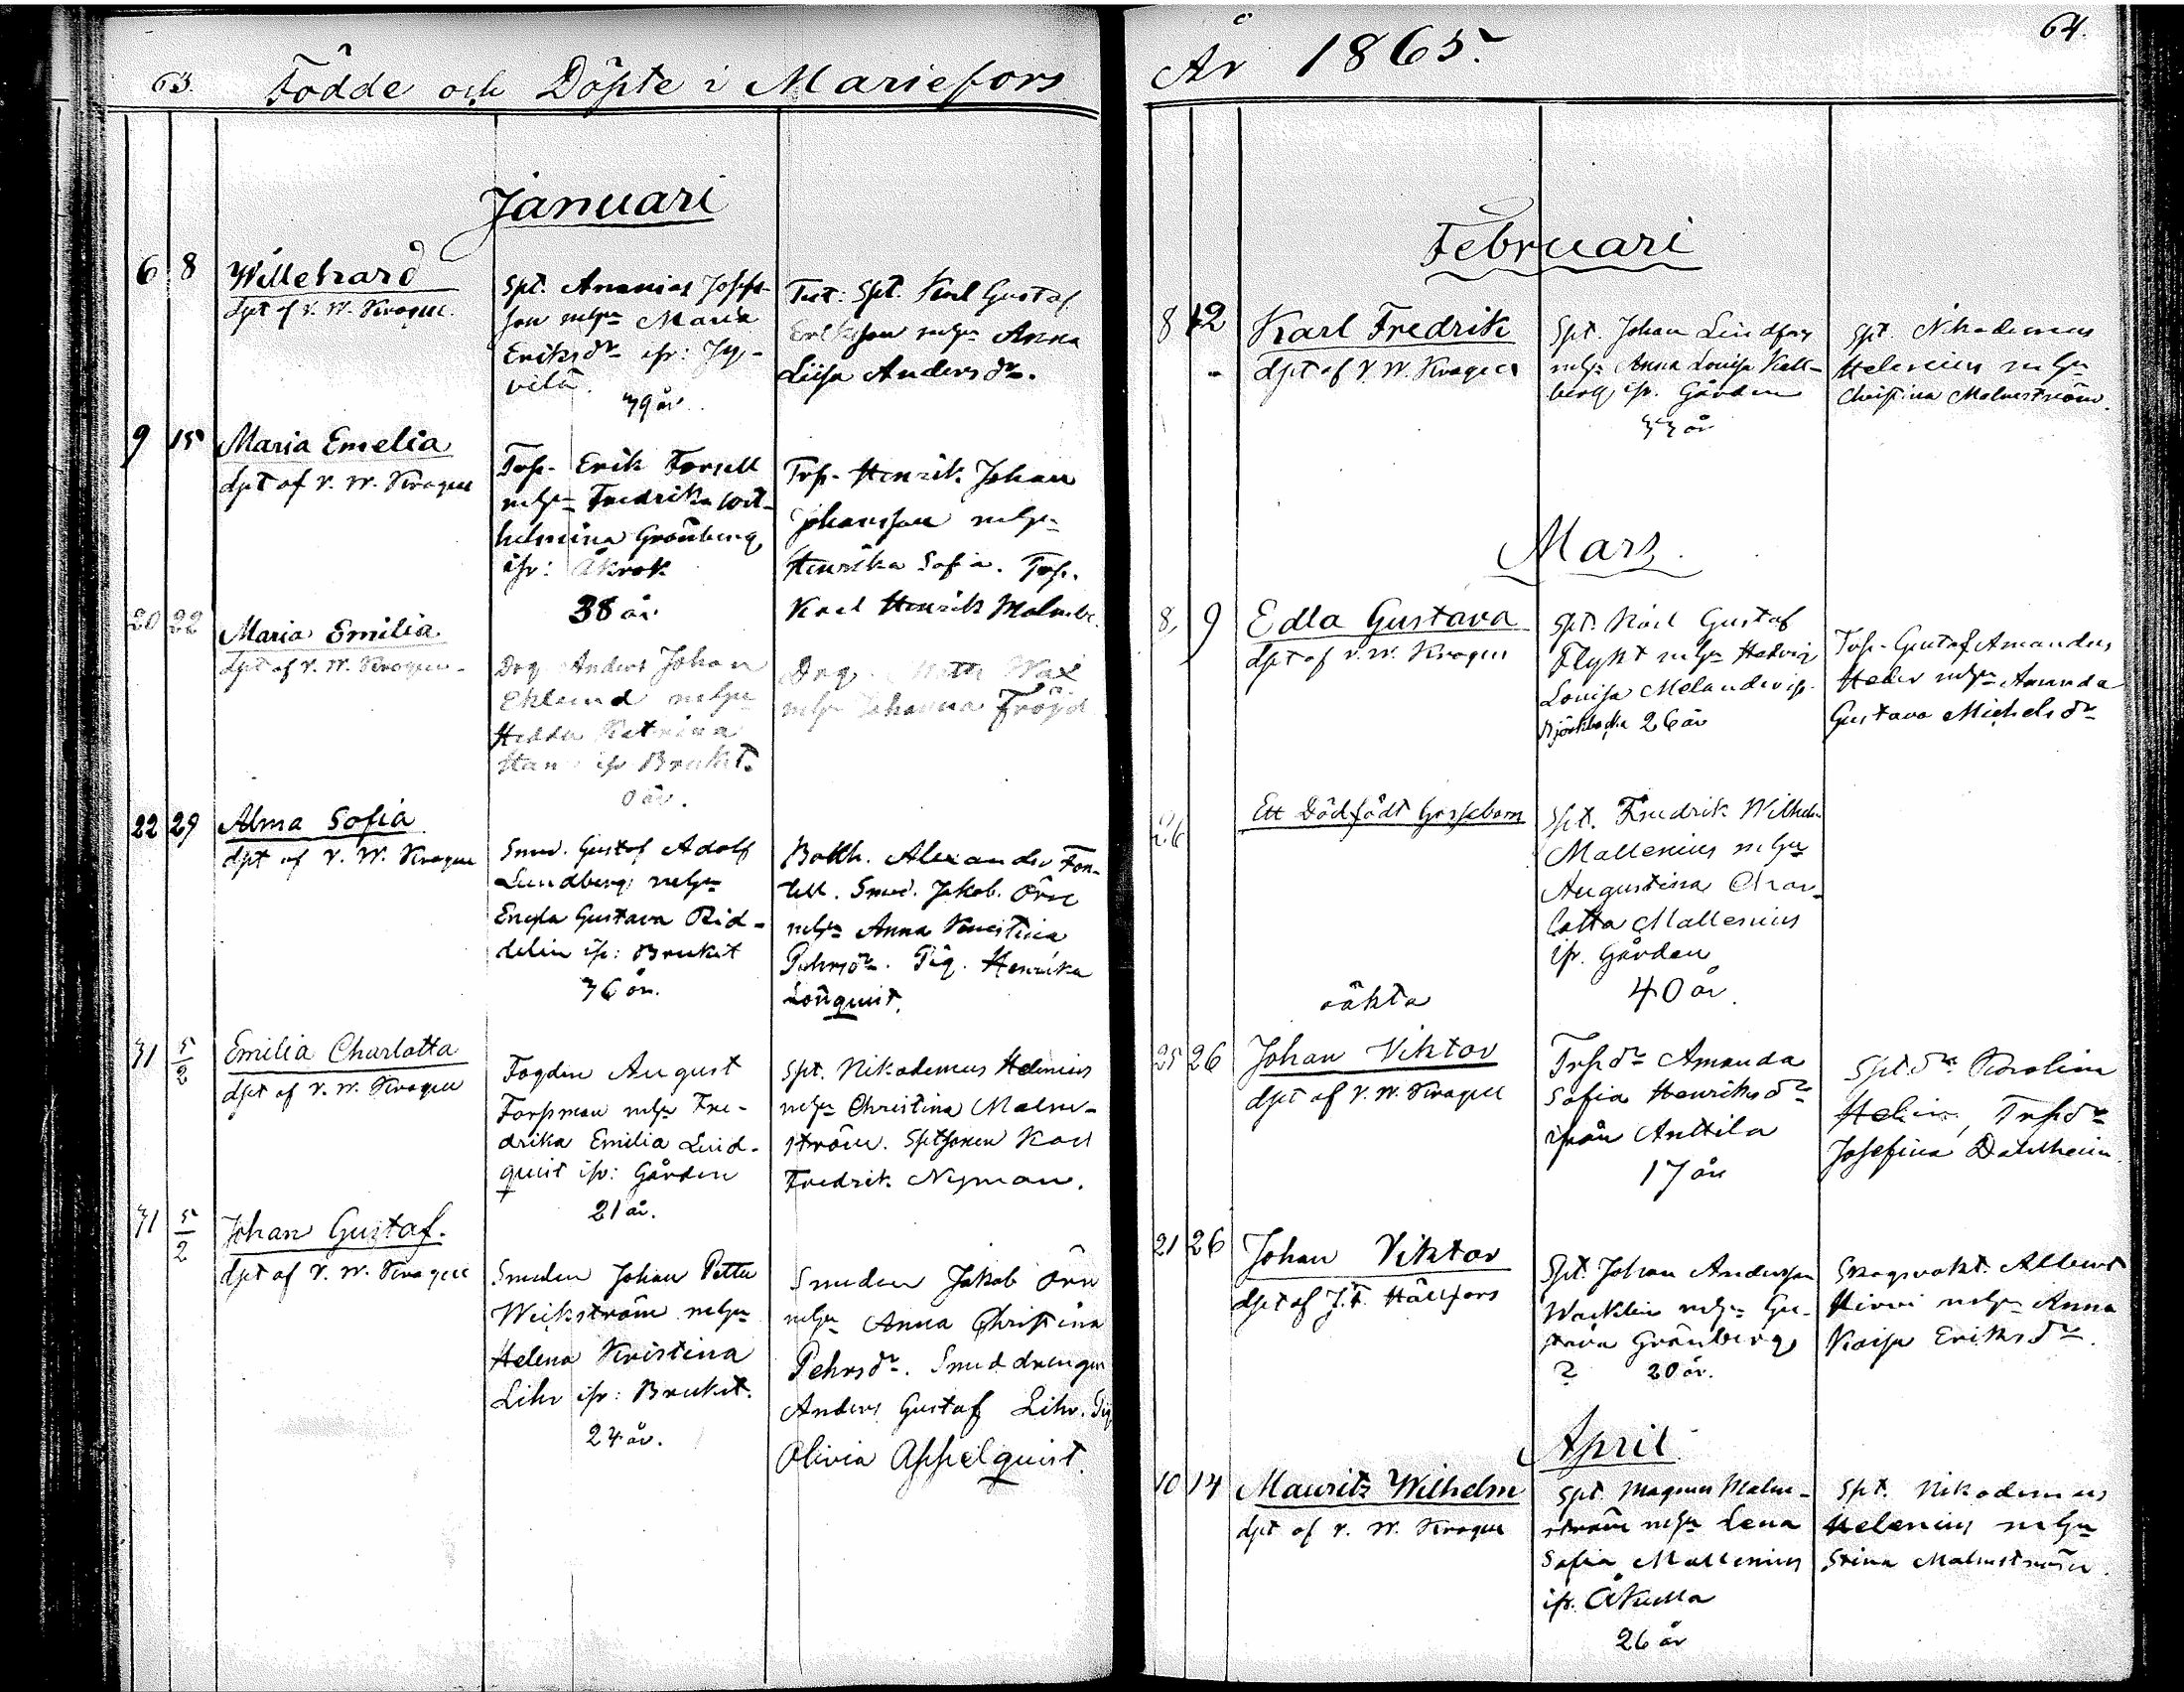 63. Födde och Döpte i Mariefors
Januari
6 8 Willehard
dpt af V. W. Kragen.
Spt. Ananias Josefs-
son mhu Maria
Eriksdr ifr: Jy-
velä.
39 år.
Tut: Spt. Karl Gustaf
Eriksson mhu Anna
Luisa Andersdr.
9 15 Maria Emelia
dpt af V. W. Kragen
Trp. Erik Forsell
mhu Fredrika Wil-
helmina Grönberg
ifr: Åkrok
38 år
Trp. Henrik Johan
Johansson mhu
Henrika Sofia. Trp.
Karl Henrik Malmbe.
20 22 Maria Emilia
dpt af V. W. Kragen.
Drg. Anders Johan
Eklund mhu
Hedda Katrina
ifr Brukt.
0 år.
Drg.
mhu Johanna Fröjd
22 29 Alma Sofia
dpt af V. W. Kragen
Smed. Gustaf Adolf
Lundberg mhu
Engla Gustava Rid-
delin ifr: Bruket
36 år.
Bokh. Alexander For-
sell. Smed. Jakob Örn
mhu Anna Kristina
Pehrsdr. Pig. Henrika
Lönquist.
31 5/2 Emilia Charlotta
dpt af V. W. Kragen
Fogden August
Forsman mhu Fre-
drika Emilia Lind-
quist ifr: Gården
21 år.
Spt. Nikodemus Helenius
mhu Christina Malm-
ström. Sptsonen Karl
Fredrik Nyman.
31 5/2 Johan Gustaf.
dpt af V. W. Kragen
Smeden Johan Petter
Weckström mhu
Helena Kristina
Lihr ifr: Bruket.
24 år.
Smeden Jakob Örn
mhu Anna Christina
Pehrsdr. Smeddrengen
Anders Gustaf Lihr. Pig
Olivia Appelquist.
År 1865. 64.
Februari
8 12 Karl Fredrik
dpt af V. W. Kragen
Spt. Johan Lindfors
mhu Anna Louisa Kall-
berg ifr. Gården
33 år
Spt. Nikodemus
Helenius mhu
Christina Malmström.
Mars.
8, 9 Edla Gustava
dpt af V. W. Kragen
Spt. Karl Gustaf
Flykt mhu Hedvig
Louisa Melander ifr.
Björkbacka 26 år
Trp. Gustaf Amandus
Heler mhu Amanda
Gustava Michelsdr
26 Ett Dödfödt Gossebarn
Spt. Fredrik Wilhelm
Mallenius mhu
Augustina Char-
lotta Mallenius
ifr. Gården
40 år.
oäkta
25 26 Johan Viktor
dpt af V. W. Kragen
Trpdr Amanda
Sofia Henriksdr
ifrån Anttila
17 år
Sptdr. Karolina
Helin, Trpdr
Josefina Dahlheim.
21 26 Johan Viktor
dpt af J. F. Hällfors
Spt. Johan Andersson
Wacklin mhu Gu-
stava Grönberg
? 20 år.
Skogsvakt. Albert
Hirvi mhu Anna
Kaisa Eriksdr.
April
10 14 Mauritz Wilhelm
dpt af V. W. Kragen
Spt. Magnus Malm-
ström mhu Lena
Sofia Mallenius
ifr. Åkulla
26 år
Spt. Nikodemus
Helenius mhu
Stina Malmström.